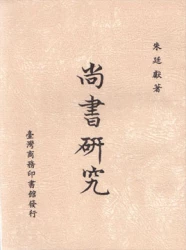 朱廷獻著
尚書研究
臺灣商務印書館發行